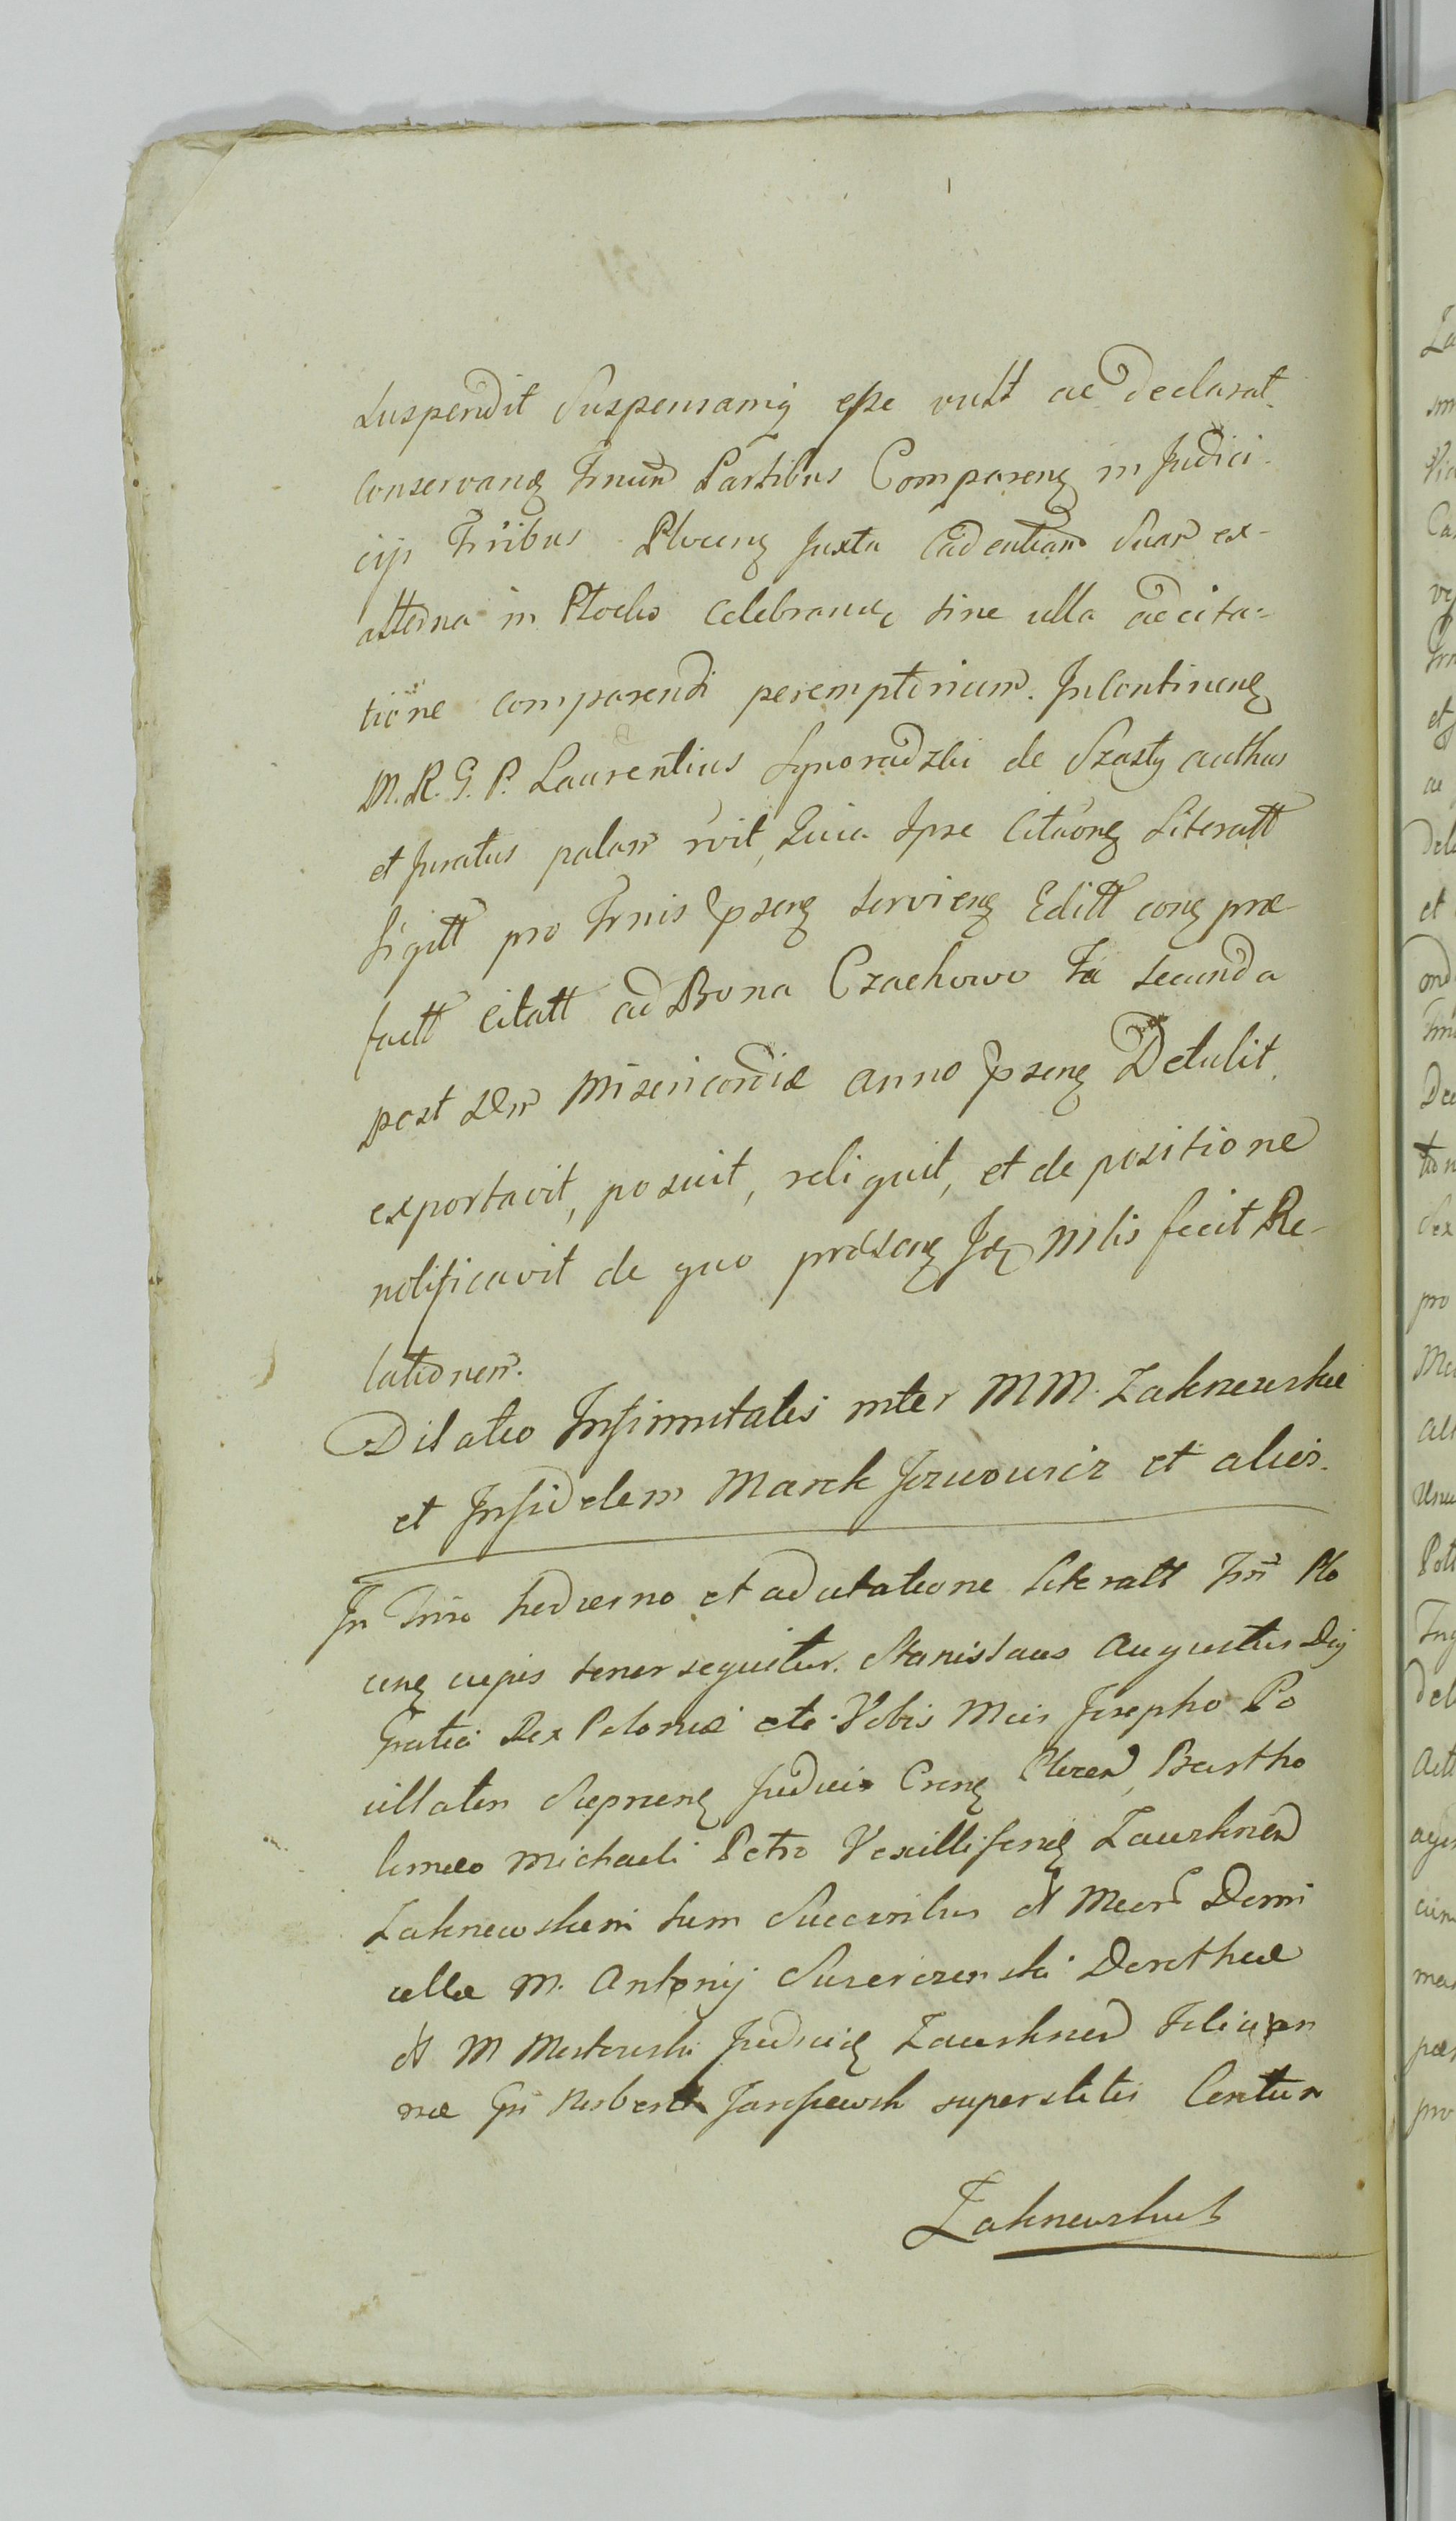 Suspendit Suspensamq esse vult ac Declarat
Conservanq Trnum Partibus Comparenq in Judici
cijs Trribus Plocenq Juxta Cadentiam Suam ex-
alterna in Plocko Celebranq sine ulla adcita=
tione comparendi peremptorium. Incontinenq
M. R. G. P. Laurentius Sgnoradzki de Szasty authus
et Juratus palam rvit, Quia Ipse Citaonq Literatt
Sigitt pro Trnis Ipsenq servienq Editt conq prae
fatt Citatt ad Bona Czachowo fa secunda
post Dm Misericordiae anno Ipsenq Detulit
exportavit, posuit, reliquit, et de positione
notificavit de quo praesenq Jdq Mlis fecit Re-
lationem.
Dilatio Infirmitatis inter MM. Zaknewskie
et Infidelem Marek Jozwowicz et alios.
In Trno hodierno et adcitatione Literatt Trri Plo
cenq cujus tenor sequitur. Stanislaus Augustus Dej
Gratia Rex Poloniae etc. Vobis Mcis Josepho Po
cillatori Sieprcenq Judici Crenq Plocen, Bartho
lomeo Michaeli Petro Vexillifenq Zawsknen
Zaknewskiemi tum Succoribus olt Meor Domi
cellae M. Antonij Suzerczewski Dorotheae
olt M Mostowski Judicis Zawsknen Felician
nae Gsi Norbertt Jarossewsk superstitis Contun
Zaknewskich